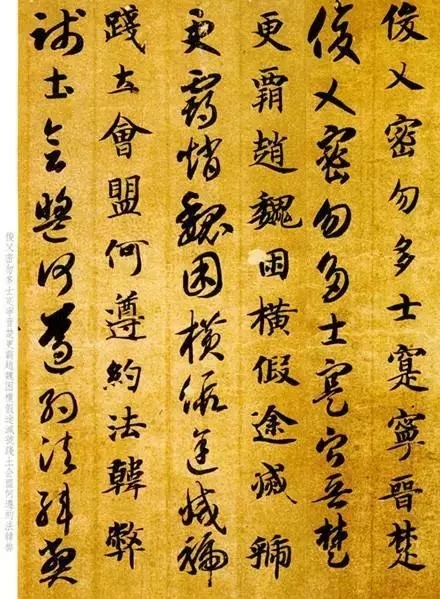 俊乂密勿多士寔寧晉楚
俊乂密勿多士寔寧晉楚
更霸趙魏困橫假途滅虢
更霸趙魏困橫假途滅虢
踐土會盟何遵約法韓弊
踐土會盟何遵約法韓弊
俊乂密勿多士寔寧晉楚更霸趙魏困橫假途滅虢踐土會盟何遵約法韓弊